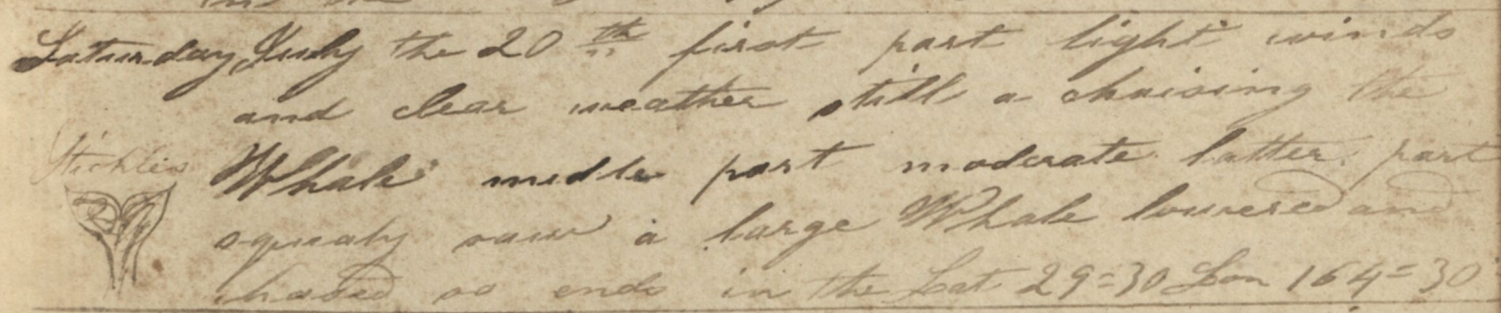 Saturday July the 20th first part light winds
and clear weather still a chaising the
Whale middle part moderate latter part
squaly saw a large Whale lowered and
chased so ends in the Lat 29=30 Lon 164=30